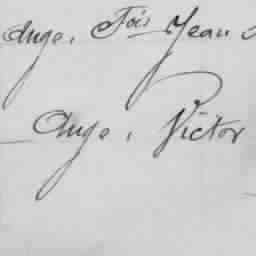 Ange, Fois Jean
Ange, Victor